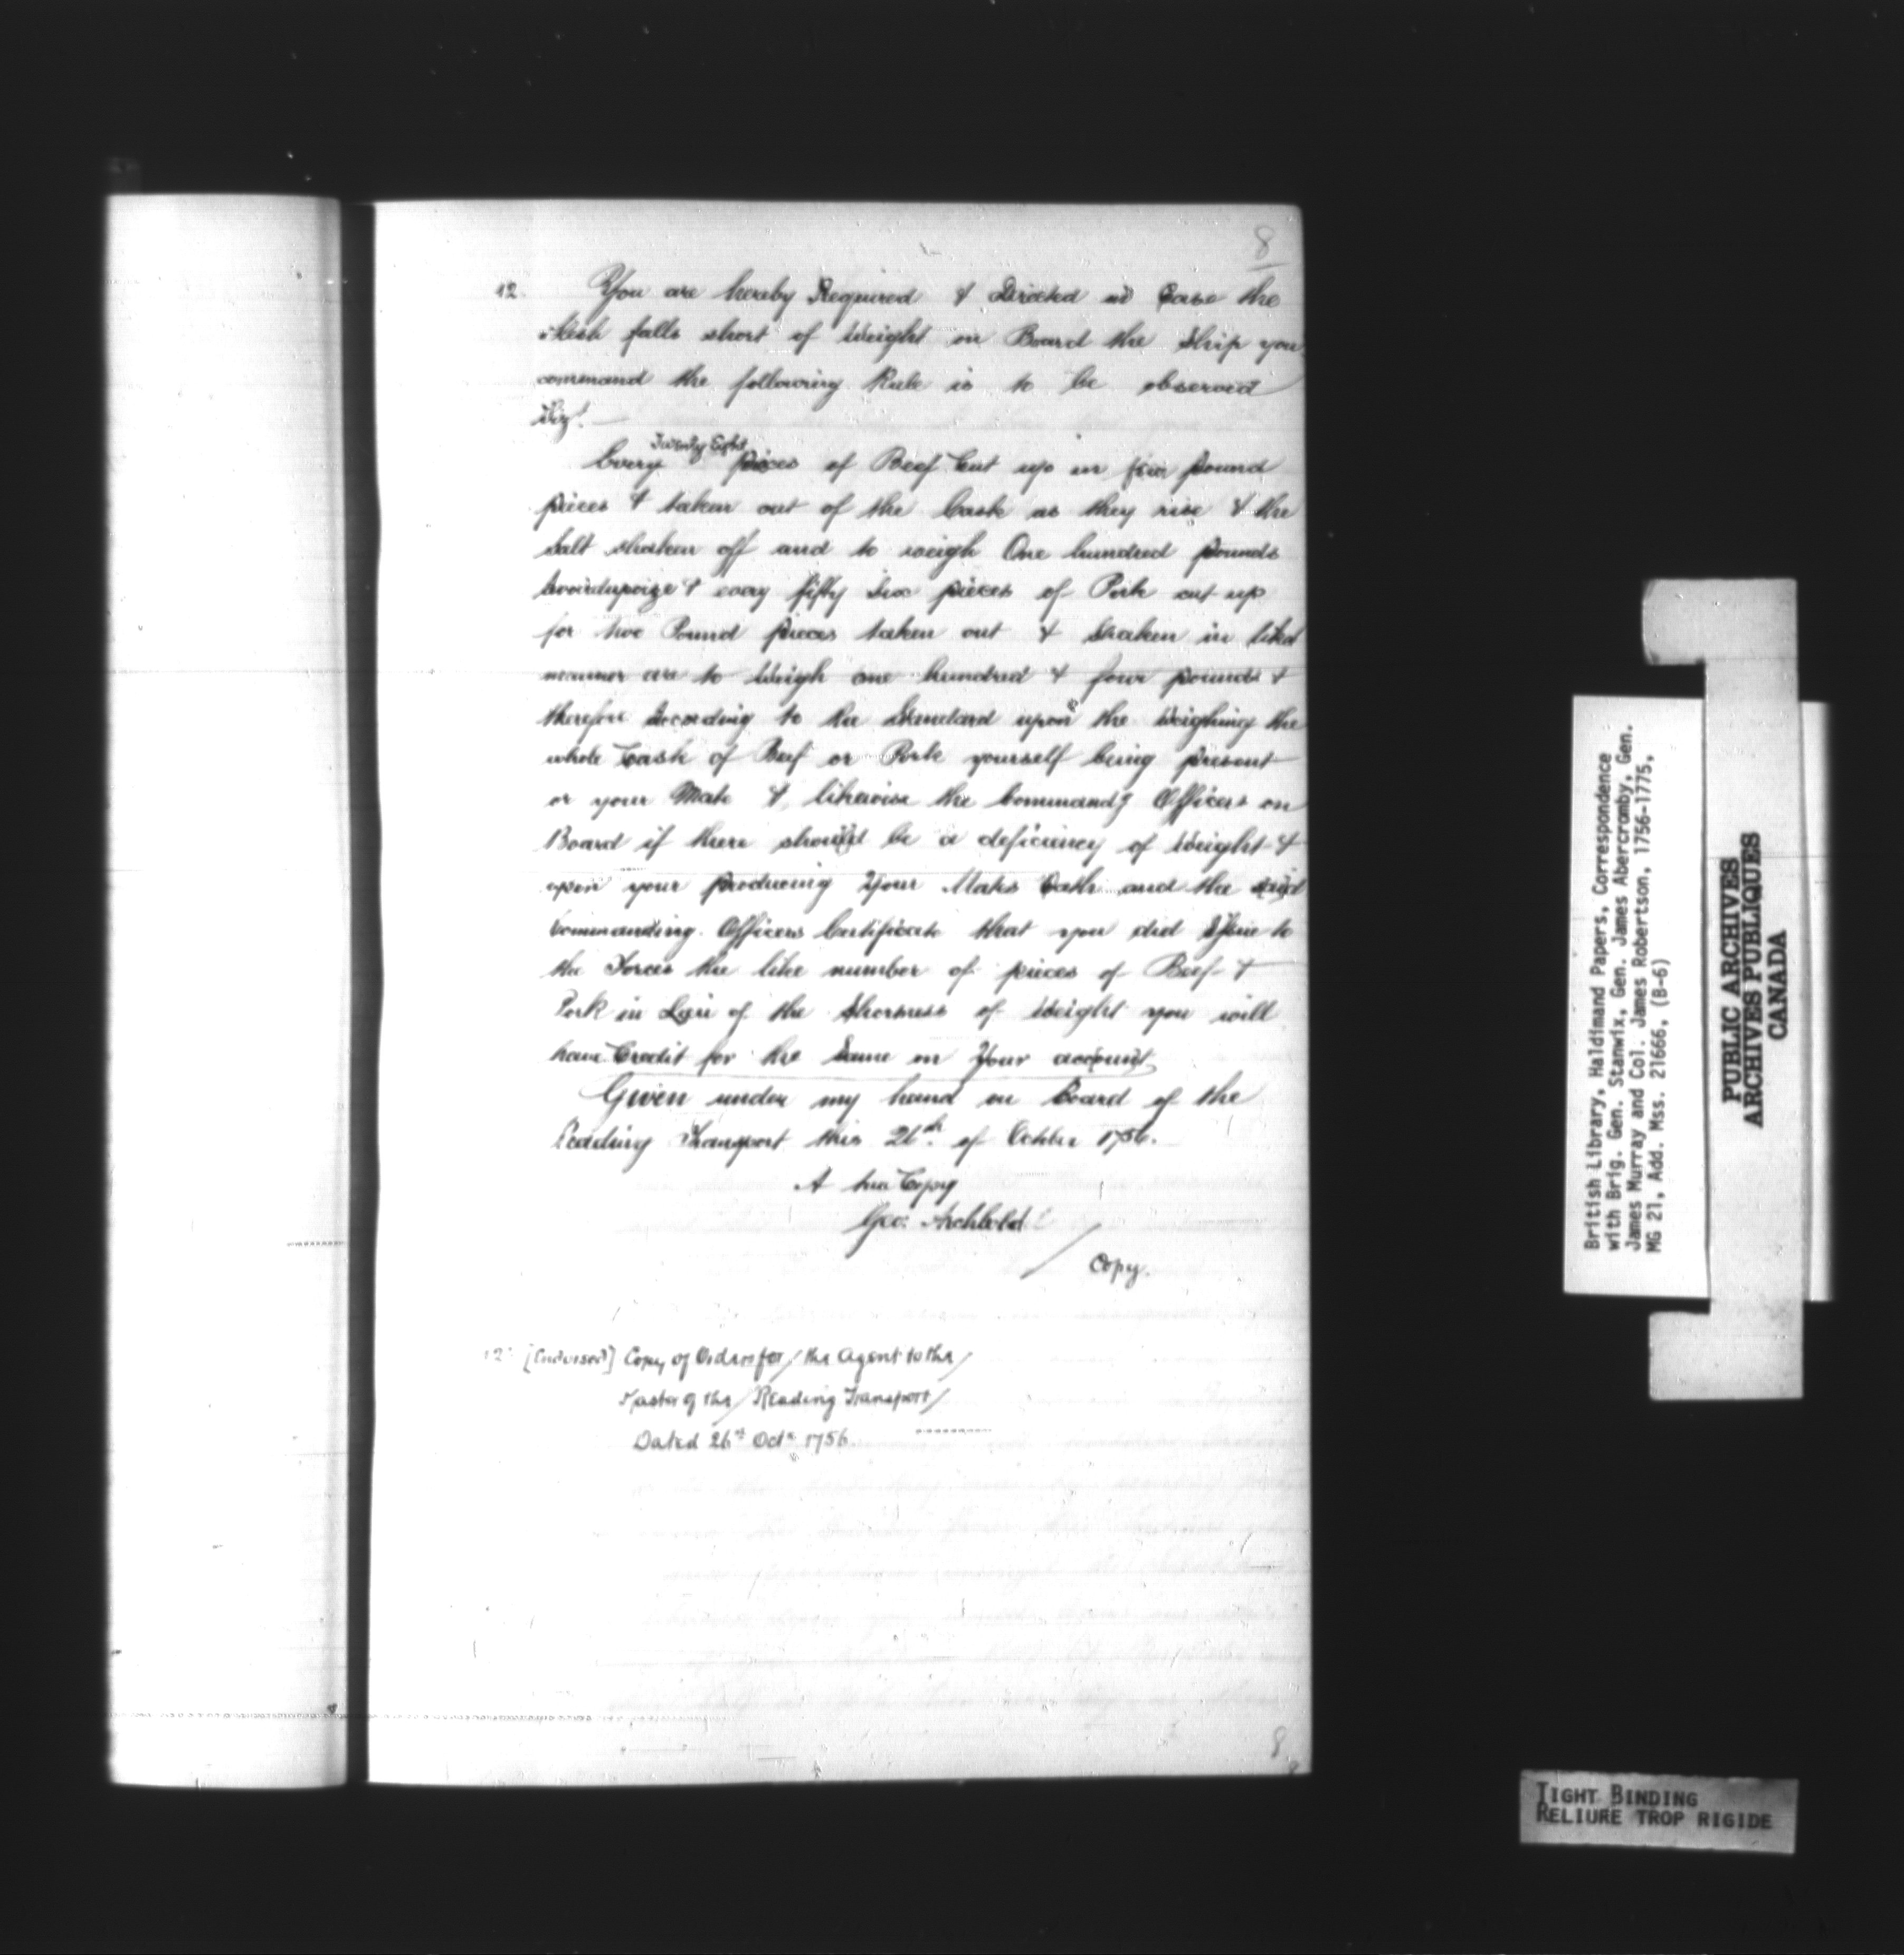 8
12. You are hereby Required & Directed in Case the
flesh falls short of Weight on Board the Ship you
command the following Rule is to be observed
Viz!
Every Twenty Eight pieces of Beef Cut up in four pound
pieces & taken out of the Cask as they rise & the
Salt shaken off and to weigh One hundred pounds
Avoirdupoize & every fifty Six pieces of Pork cut up
for two Pound pieces taken out & Shaken in like
manner are to Weigh one hundred & four pounds &
therefore According to the Standard upon the Weighing the
whole Cask of Beef or Pork yourself being present
or your Mate & likewise the Commandg Officers on
Board if there should be a deficiency of Weight &
upon your producing Your Mates Oath and the said
Commanding Officers Certificate that you did Issue to
the Forces the like number of pieces of Beef &
Pork in Lieu of the Shortness of Weight you will
have Credit for the Same on Your account
Given under my hand on Board of the
Reading Transport this 26th of October 1756.
A true Copy
Geo: Archbold
Copy.
12. [Endorsed] Copy of Orders for / the Agent to the /
Master of the / Reading Transport /
Dated 26th Octr 1756.
8
British Library, Haldimand Papers, Correspondence
with Brig. Gen. Stanwix, Gen. James Abercromby, Gen.
James Murray and Col. James Robertson, 1756-1775,
MG 21, Add. Mss. 21666, (B-6)
PUBLIC ARCHIVES
ARCHIVES PUBLIQUES
CANADA
TIGHT BINDING
RELIURE TROP RIGIDE